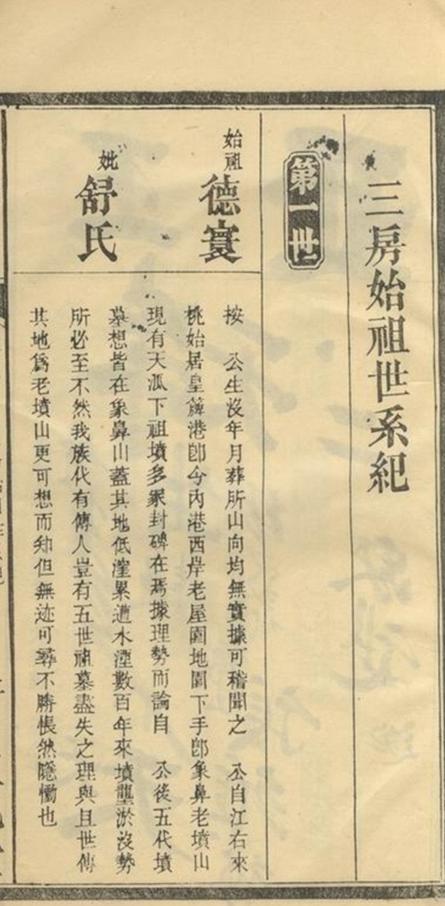 三房始祖世系紀
第一世
始祖
德寰
妣
舒氏
按　公生沒年月葬所山向均無實據可稽聞之　公自江右來
桃始居皇簰港卽今內港西岸老屋園地園下手卽象鼻老墳山
現有天派下祖墳多冢封碑在焉據理勢而論自　公後五代墳
墓想皆在象鼻山蓋其地低窪累遭水湮數百年來墳壟淤沒勢
所必至不然我族代有傳人豈有五世祖墓盡失之理與且世傳
其地爲老墳山更可想而知但無迹可尋不勝悵然隱慟也